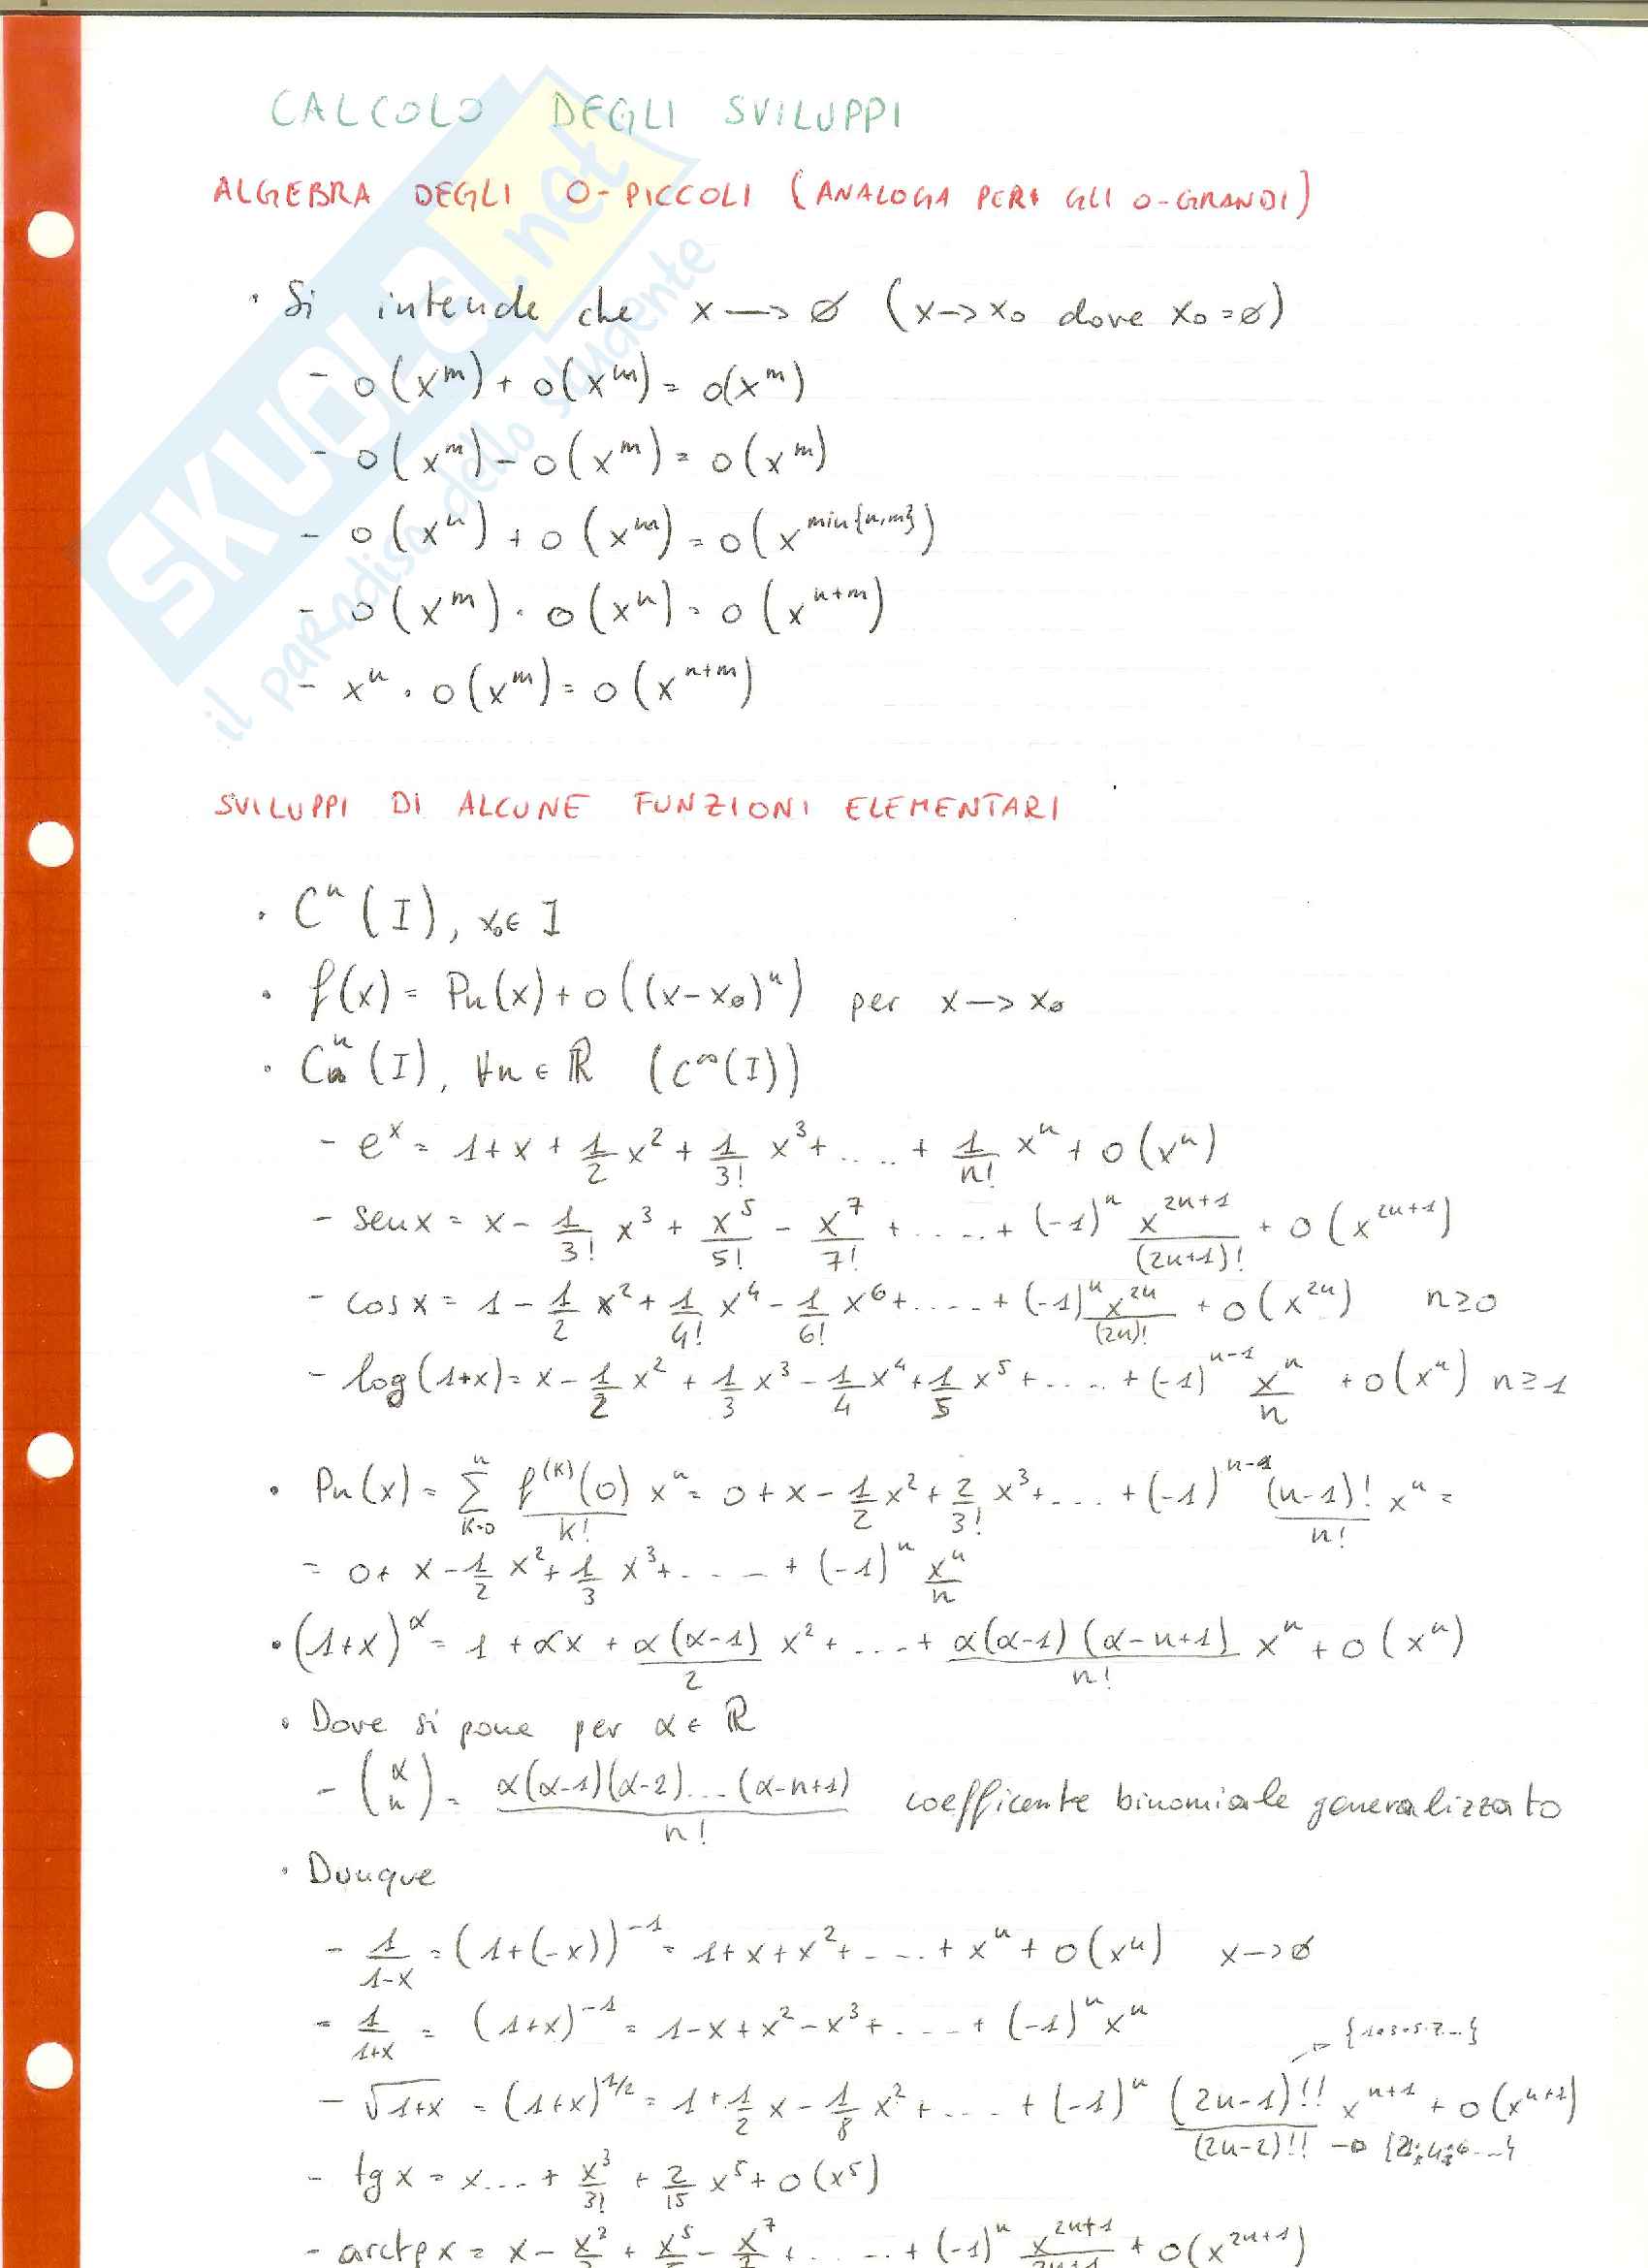 CALCOLO DEGLI SVILUPPI
ALGEBRA DEGLI O-PICCOLI (ANALOGA PER GLI O-GRANDI)
• Si intende che x → ∅ (x → x₀ dove x₀ = ∅)
- o(x^m) + o(x^m) = o(x^m)
- o(x^m) - o(x^m) = o(x^m)
- o(x^n) + o(x^m) = o(x^min{n,m})
- o(x^m) · o(x^n) = o(x^(n+m))
- x^n · o(x^m) = o(x^(n+m))
SKUOLA.net
il paradiso dello studente
SVILUPPI DI ALCUNE FUNZIONI ELEMENTARI
• C^n(I), x₀ ∈ I
• f(x) = Pn(x) + o((x-x₀)^n) per x → x₀
• C^n(I), ∀n ∈ ℝ (C^∞(I))
- e^x = 1 + x + 1/2 x² + 1/3! x³ + .... + 1/n! x^n + o(x^n)
- sen x = x - 1/3! x³ + x⁵/5! - x⁷/7! + ..... + (-1)^n x^(2n+1)/(2n+1)! + o(x^(2n+1))
- cos x = 1 - 1/2 x² + 1/4! x⁴ - 1/6! x⁶ + ..... + (-1)^n x^(2n)/(2n)! + o(x^(2n)) n ≥ 0
- log(1+x) = x - 1/2 x² + 1/3 x³ - 1/4 x⁴ + 1/5 x⁵ + ..... + (-1)^(n-1) x^n/n + o(x^n) n ≥ 1
• Pn(x) = Σ_(K=0)^n f^(K)(0)/K! x^n = 0 + x - 1/2 x² + 2/3! x³ + .... + (-1)^(n-1) (n-1)!/n! x^n =
= 0 + x - 1/2 x² + 1/3 x³ + .... + (-1)^n x^n/n
• (1+x)^α = 1 + αx + α(α-1)/2 x² + .... + α(α-1)(α-n+1)/n! x^n + o(x^n)
• Dove si pone per α ∈ ℝ
- (α n) = α(α-1)(α-2)...(α-n+1)/n! coefficente binomiale generalizzato
• Dunque
- 1/(1-x) = (1+(-x))^-1 = 1 + x + x² + .... + x^n + o(x^n) x → ∅
- 1/(1+x) = (1+x)^-1 = 1 - x + x² - x³ + .... + (-1)^n x^n
→ {1·3·5·7...}
- √(1+x) = (1+x)^1/2 = 1 + 1/2 x - 1/8 x² + .... + (-1)^n (2n-1)!!/(2n-2)!! x^(n+1) + o(x^(n+1))
→ {2·4·6...}
- tg x = x... + x³/3! + 2/15 x⁵ + o(x⁵)
- arctg x = x - x³/3 + x⁵/5 - x⁷/7 + ..... + (-1)^n x^(2n+1)/2n+1 + o(x^(2n+1))